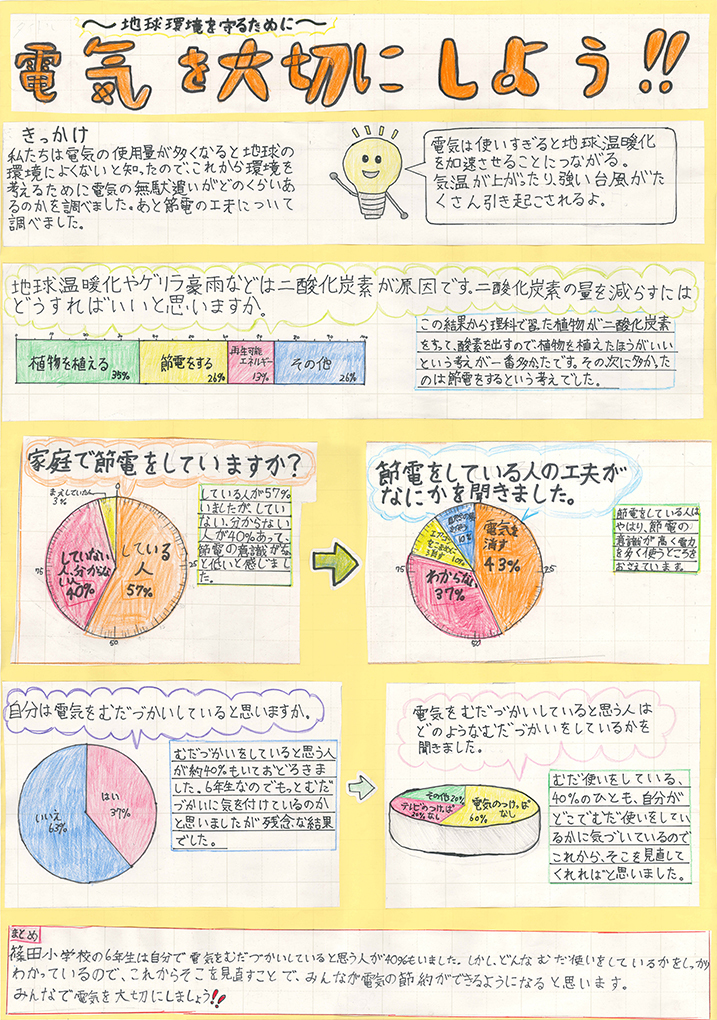 ～地球環境を守るために～
電気を大切にしよう!!
きっかけ
私たちは電気の使用量が多くなると地球の
環境によくないと知ったので、これから環境を
考えるために電気の無駄遣いがどのくらいあ
るのかを調べました。あと節電の工夫について
調べました。
電気は使いすぎると地球温暖化
を加速させることにつながる。
気温が上がったり、強い台風がた
くさん引き起こされるよ。
地球温暖化やゲリラ豪雨などは二酸化炭素が原因です。二酸化炭素の量を減らすには
どうすればいいと思いますか。
植物を植える 35%
節電をする 26%
再生可能
エネルギー
13%
その他 26%
この結果から理科で習った植物が二酸化炭素
をすって、酸素を出すので植物を植えたほうがいい
という考えが一番多かったです。その次に多かっ
たのは節電をするという考えでした。
家庭で節電をしていますか?
0
25
50
75
まえしていた人
3%
している
人
57%
していない
人、分からな
い人
40%
している人が57%
いましたが、してい
ない、分からない
人が40%あって、
節電の意識がな
と低いと感じまし
た。
節電をしている人の工夫が
なにかを聞きました。
25
50
75
電気を
消す
43%
わからない
37%
エアコン
をこまめに
消す 10%
10%
節電をしている人は
やはり、節電の
意識が高く電力
を多く使うところを
おさえています。
自分は電気をむだづかいしていると思いますか。
はい
37%
いいえ
63%
むだづかいをしていると思う人
が約40%もいておどろきま
した。6年生なのでもっとむだ
づかいに気を付けているのか
と思いましたが残念な結果
でした。
電気をむだづかいしていると思う人は
どのようなむだづかいをしているかを
聞きました。
その他20%
テレビのつけっぱ
なし
20%
電気のつけっぱ
なし
60%
むだ使いをしている、
40%のひとも、自分が
どこでむだ使いをしてい
るかに気づいているので
これから、そこを見直して
くれればと思いました。
まとめ
篠田小学校の6年生は自分で電気をむだづかいしていると思う人が40%もいました。しかし、どんなむだ使いをしているかをしっかり
わかっているので、これからそこを見直すことで、みんなが電気の節約ができるようになると思います。
みんなで電気を大切にしましょう!!